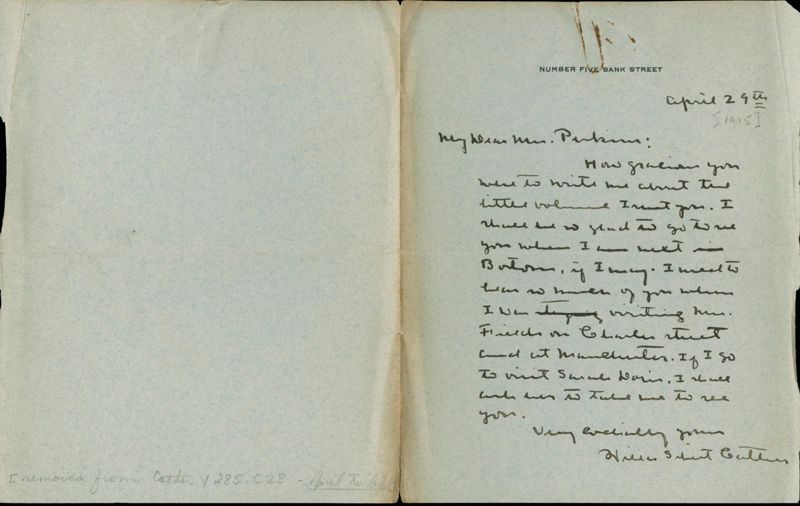 NUMBER FIVE BANK STREET
April 29th
[1915]
My Dear Mrs. Perkins:
How gracious you
were to write me about the
little volume I sent you. I
shall be so glad to go to see
you when I am next in
Boston, if I may. I used to
hear so much of you when
I was visiting Mrs.
Fields on Charles street
and at Manchester. If I go
to visit Sarah Doris, I shall
ask her to take me to see
you.
Very cordially yours
Willa Sibert Cather
[removed from Cather Y 285.C28 - April Twilights